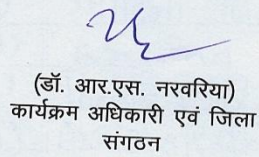 (डॉ. आर.एस. नरवरिया)
कार्यक्रम अधिकारी एवं जिला
संगठन